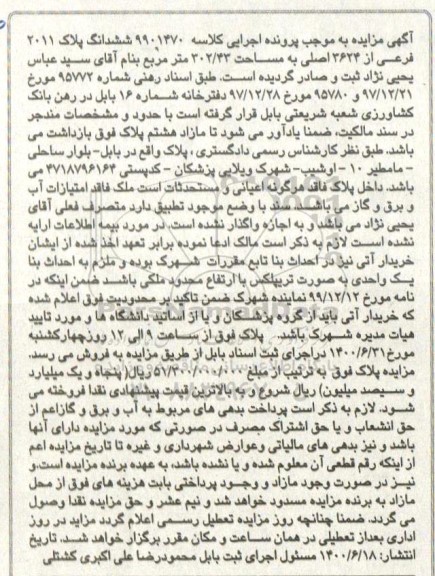 آگهی مزایده به موجب پرونده اجرایی کلاسه ۹۹۰۱۴۷۰ ششدانگ پلاک ۲۰۱۱
فرعی از ۳۶۲۴ اصلی به مساحت ۳۰۲/۴۳ متر مربع بنام آقای سید عباس
یحیی نژاد ثبت و صادر گردیده است. طبق اسناد رهنی شماره ۹۵۷۷۲ مورخ
۹۷/۱۲/۲۱ و ۹۵۷۸۰ مورخ ۹۷/۱۲/۲۸ دفترخانه شماره ۱۶ بابل در رهن بانک
کشاورزی شعبه شریعتی بابل قرار گرفته است با حدود و مشخصات مندرجر
در سند مالکیت، ضمنا یادآور می شود تا مازاد هشتم پلاک فوق بازداشت می
باشد. طبق نظر کارشناس رسمی دادگستری، پلاک واقع در بابل- بلوار ساحلی
- مامطیر ۱۰ - اوشیب- شهرک ویلایی پزشکان - کدپستی ۴۷۱۸۷۹۶۱۶۴ می
باشد. داخل پلاک فاقد هرگونه اعیانی و مستحدثات است ملک فاقد امتیازات آب
و برق و گاز می باشد. سند با وضع موجود تطبیق دارد متصرف فعلی آقای
یحیی نژاد می باشد و به اجاره واگذار نشده است. در مورد بیمه اطلاعات ارایه
نشده است لازم به ذکر است مالک ادعا نموده برابر تعهد اخذ شده از ایشان
خریدار آتی نیز در احداث بنا تابع مقررات شهرک بوده و ملزم به احداث بنا
یک واحدی به صورت تریپلکس با ارتفاع محدود ملکی باشد ضمن اینکه در
نامه مورخ ۹۹/۱۲/۱۲ نماینده شهرک ضمن تاکید بر محدودیت فوق اعلام شده
که خریدار آتی باید از گروه پزشکان و یا از اساتید دانشگاه ها و مورد تایید
هیات مدیره شهرک باشد. پلاک فوق از ساعت ۹ الی ۱۲ روزچهارکشنبه
مورخ ۱۴۰۰/۶/۳۱ دراجرای ثبت اسناد بابل از طریق مزایده به فروش می رسد.
مزایده پلاک فوق به ترتیب از مبلغ ۵۱/۳۰۰/۰۰۰/۰۰۰ ریال( پنجاه و یک میلیارد
و سیصد میلیون) ریال شروع و به بالاترین قیمت پیشنهادی نقدا فروخته می
شود. لازم به ذکر است پرداخت بدهی های مربوط به آب و برق و گازاعم از
حق انشعاب و یا حق اشتراک مصرف در صورتی که مورد مزایده دارای آنها
باشد و نیز بدهی های مالیاتی وعوارض شهرداری و غیره تا تاریخ مزایده اعم
از اینکه رقم قطعی آن معلوم شده و یا نشده باشد، به عهده برنده مزایده است.و
نیز در صورت وجود مازاد و وجود پرداختی بابت هزینه های فوق از محل
مازاد به برنده مزایده مسدود خواهد شد و نیم عشر و حق مزایده نقدا وصول
می گردد. ضمنا چنانچه روز مزایده تعطیل رسمی اعلام گردد مزاید در روز
اداری بعداز تعطیلی در همان ساعت و مکان مقرر برگزار خواهد شد. تاریخ
انتشار: ۱۴۰۰/۶/۱۸ مسئول اجرای ثبت بابل محمودرضا علی اکبری کشتلی